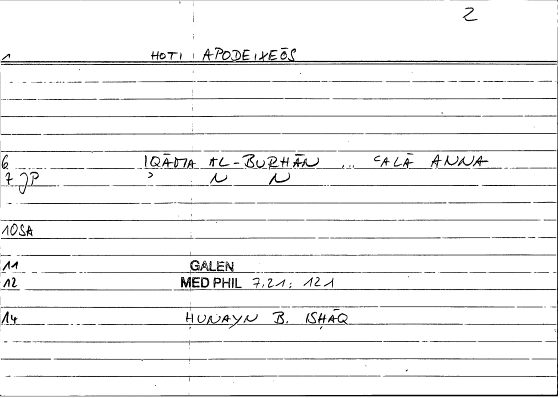 2
1 HOTI APODEIXEŌS
6 IQĀMA AL-BURHĀN ... ʿALĀ ANNA
7 JP ʾ N N
10SA
11 GALEN
12 MED PHIL 7,21; 121
14 ḤUNAYN B. ISḤĀQ